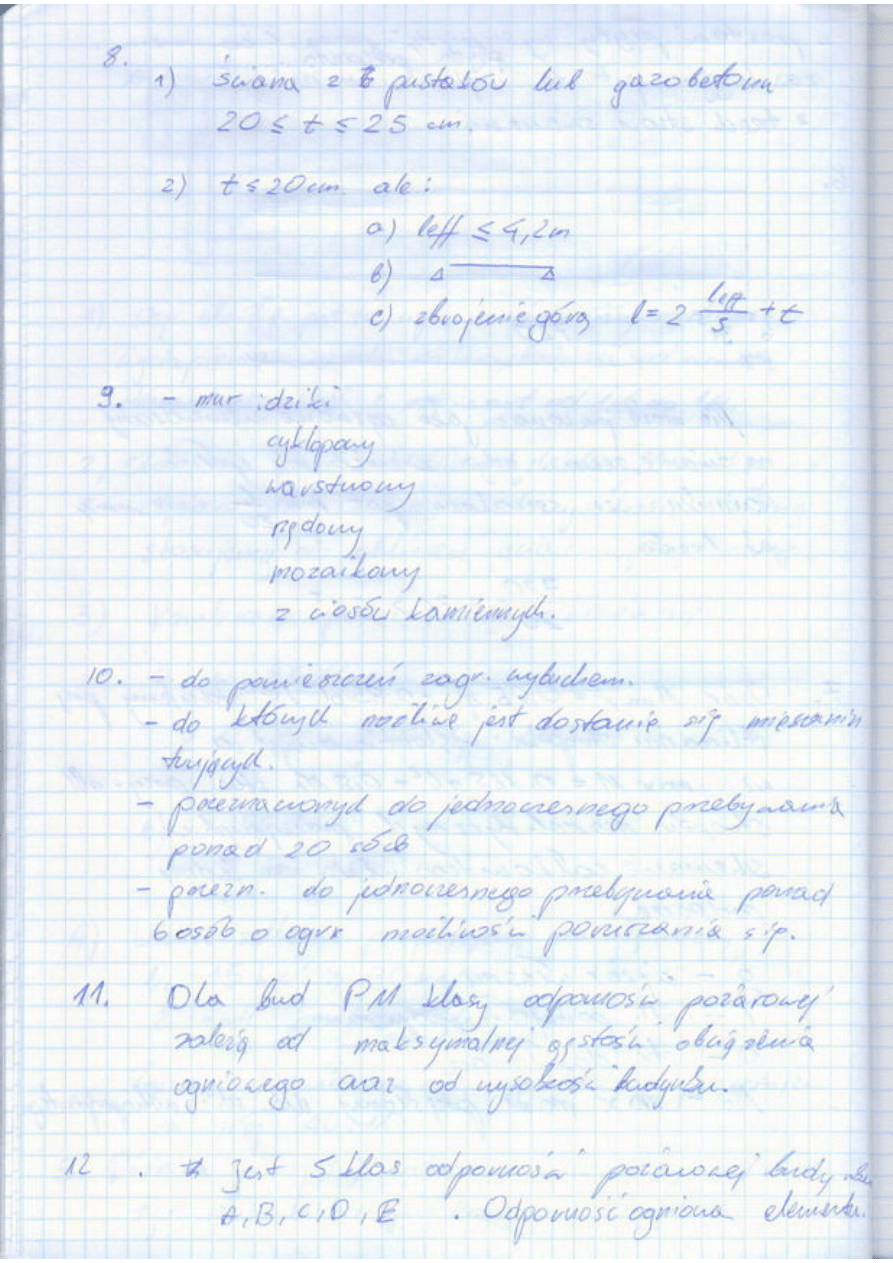 8.
1) ściana z pustaków lub gazobetonu
20 ≤ t ≤ 25 cm.
2) t ≤ 20 cm. ale:
a) leff ≤ 4,2m
b)
c) zbrojenie górą l = 2 leff/5 + t
9. - mur : dziki
cyklopowy
warstwowy
rzędowy
mozaikowy
z ciosów kamiennych.
10. - do pomieszczeń zagr. wybuchem.
- do których możliwe jest dostanie się
trujących.
- przeznaczonych do jednoczesnego przebywania
ponad 20 osób
- przezn. do jednoczesnego przebywania ponad
6 osób o ogr. możliwości poruszania się.
11. Dla bud PM klasy odporności pożarowej
zależą od maksymalnej gęstości obciążenia
ogniowego oraz od wysokości budynku.
12. Jest 5 klas odporności pożarowej budynku
A, B, C, D, E. Odporność ogniowa elementu.